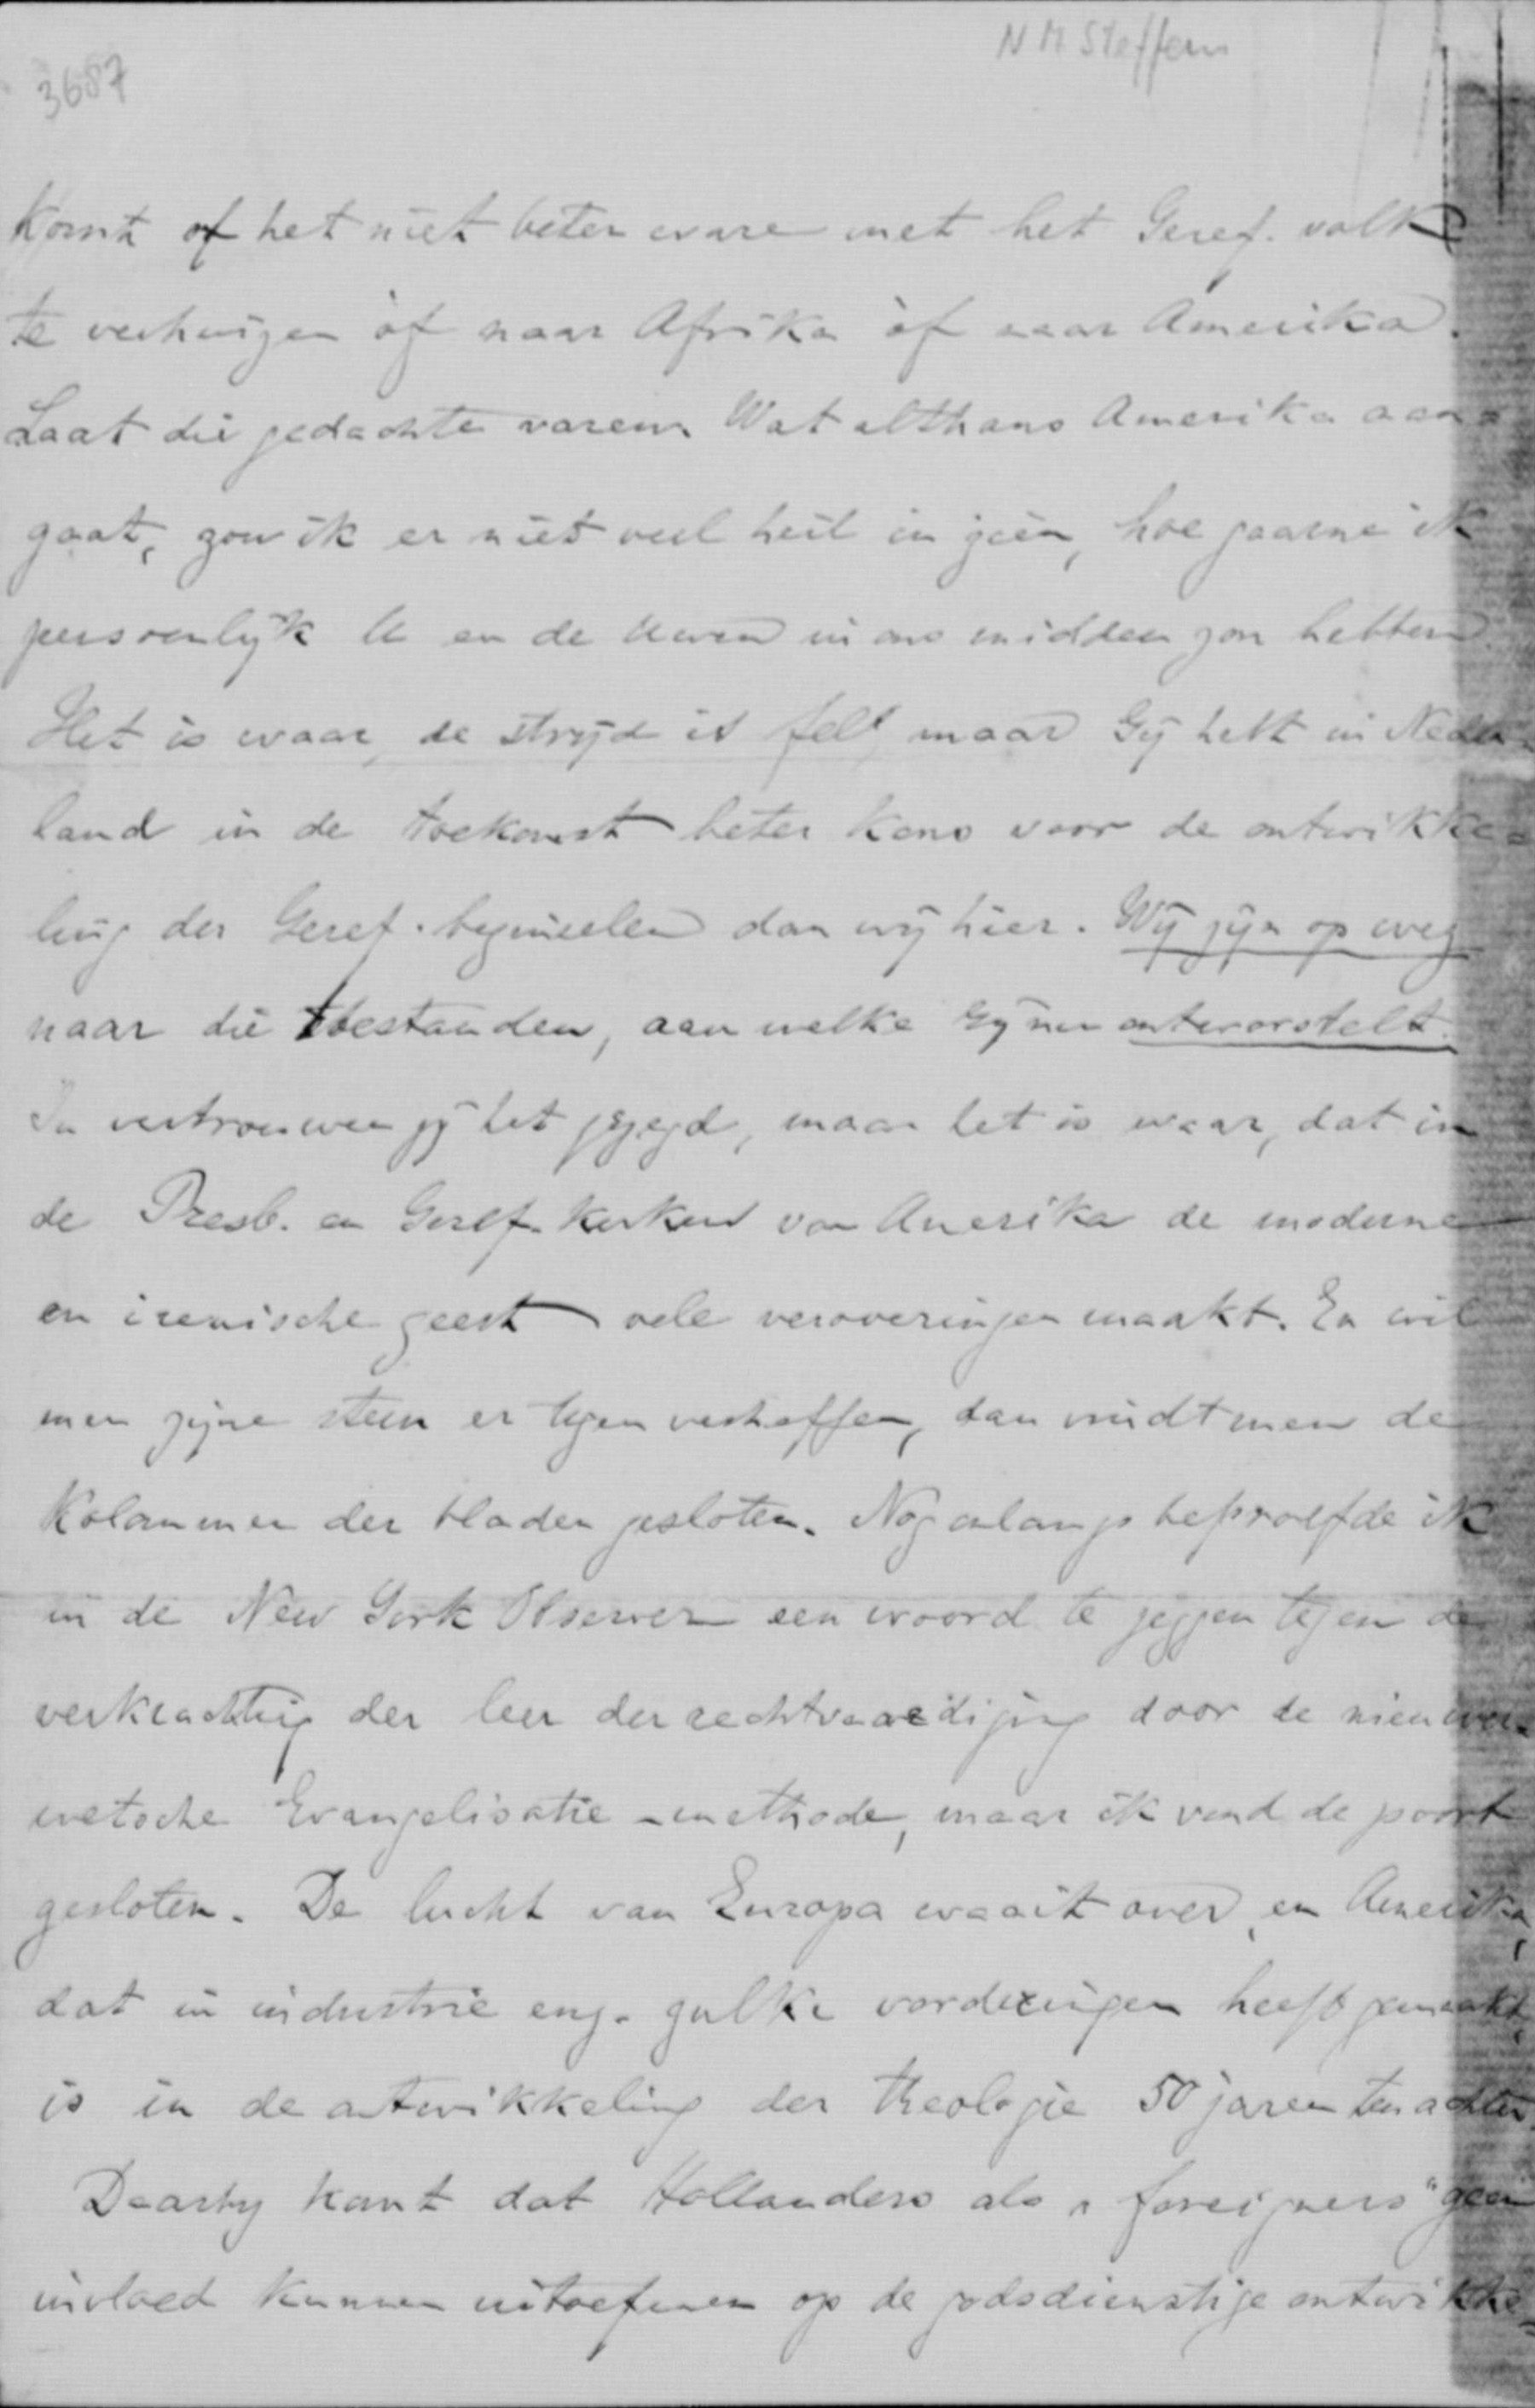 N M Steffens
3687
komt of het niet beter ware met het Geref. volk
te verhuizen òf naar Afrika òf naar Amerika.
Laat die gedachte varen. Wat althans Amerika aan=
gaat, zou ik er niet veel heil in zien, hoe gaarne ik
persoonlijk U en de Uwen in ons midden zou hebben.
Het is waar, de strijd is fel, maar Gij hebt in Neder=
land in de toekomst beter kans voor de ontwikke=
ling der Geref. beginselen dan wij hier. Wij zijn op weg
naar die toestanden, aan welke Gij nu ontworstelt.
In vertrouwen zij het gezegd, maar het is waar, dat in
de Presb. en Geref. kerken van Amerika de moderne
en irenische geest vele veroveringen maakt. En wil
men zijne stem er tegen verheffen, dan vindt men de
kolommen der bladen gesloten. Nog onlangs beproefde ik
in de New York Observer een woord te zeggen tegen de
verkrachting der leer der rechtvaardiging door de nieuwer=
wetsche Evangelisatie-methode, maar ik vond de poort
gesloten. De lucht van Europa waait over, en Amerika,
dat in industrie enz. zulke vorderingen heeft gemaakt,
is in de ontwikkeling der theologie 50 jaren ten achter.
Daarbij komt dat Hollanders als „foreigners" geen
invloed kunnen uitoefenen op de godsdienstige ontwikke=